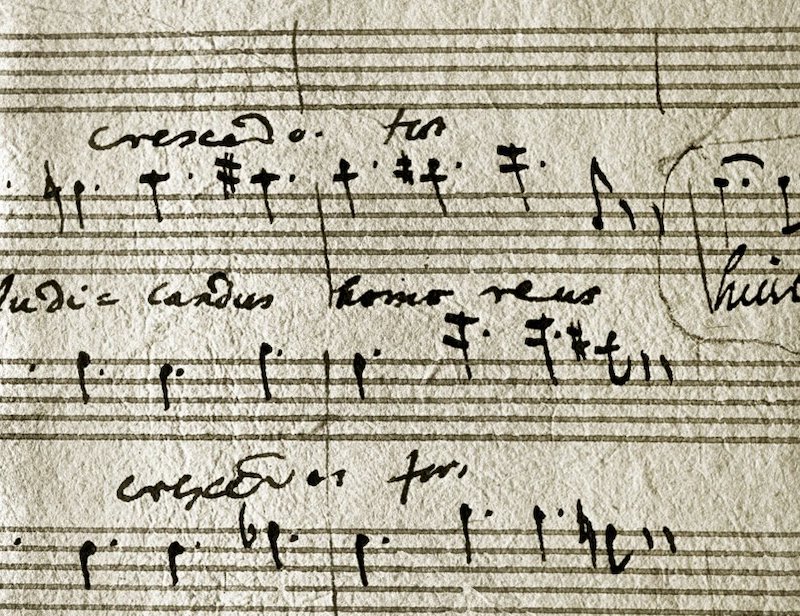 crescendo. for
judi= candus homo reus
huic
crescendo: for: